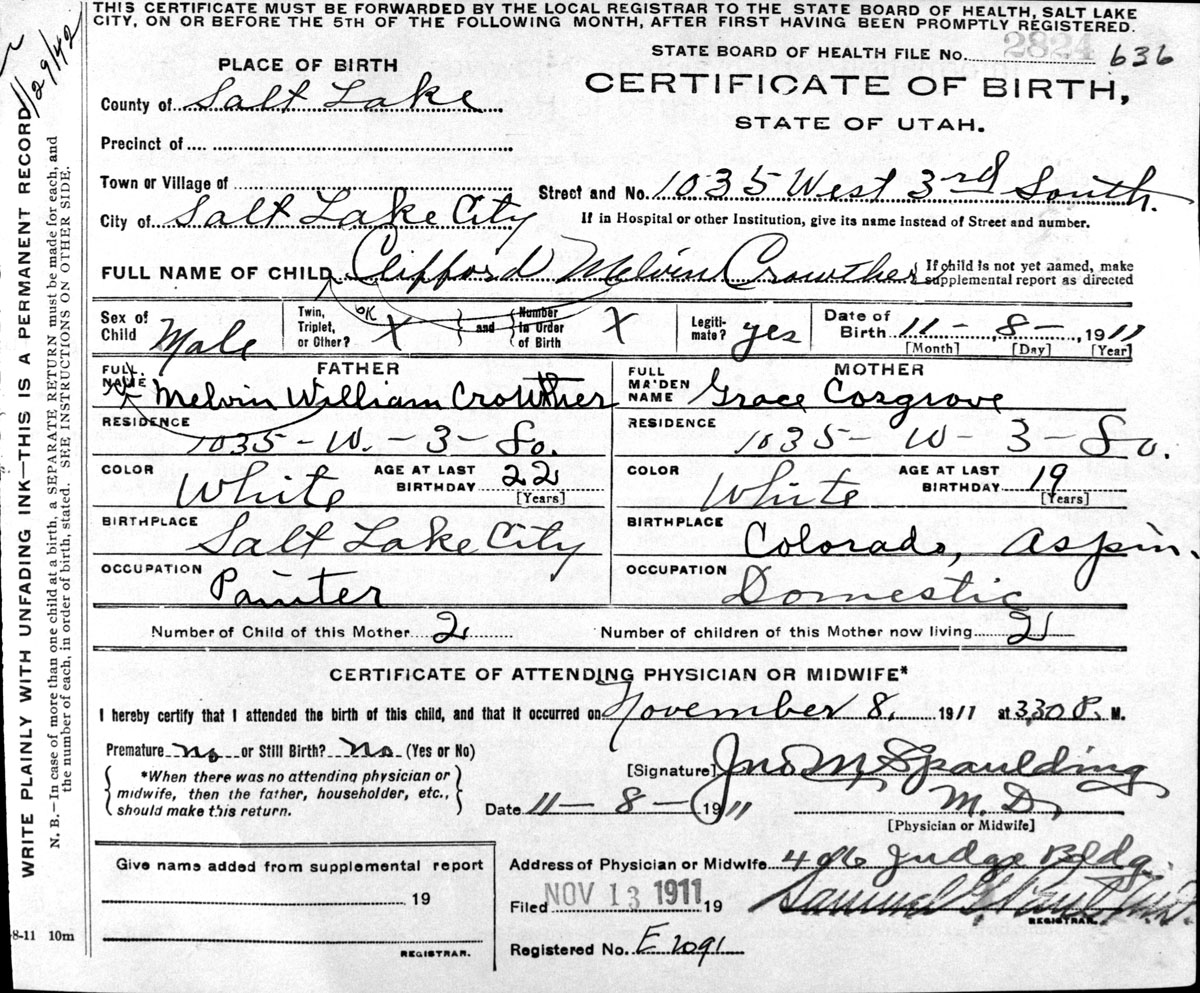 THIS CERTIFICATE MUST BE FORWARDED BY THE LOCAL REGISTRAR TO THE STATE BOARD OF HEALTH, SALT LAKE
CITY, ON OR BEFORE THE 5TH OF THE FOLLOWING MONTH, AFTER FIRST HAVING BEEN PROMPTLY REGISTERED.
11/29/42
WRITE PLAINLY WITH UNFADING INK—THIS IS A PERMANENT RECORD
N. B.—In case of more than one child at a birth, a SEPARATE RETURN must be made for each, and
the number of each, in order of birth, stated. SEE INSTRUCTIONS ON OTHER SIDE.
STATE BOARD OF HEALTH FILE No. 2824 636
PLACE OF BIRTH
CERTIFICATE OF BIRTH,
STATE OF UTAH.
County of Salt Lake
Precinct of
Town or Village of
Street and No. 1035 West 3rd South.
City of Salt Lake City
If in Hospital or other Institution, give its name instead of Street and number.
FULL NAME OF CHILD Clifford Melvin Crowther { If child is not yet named, make supplemental report as directed
Sex of Child Male
Twin, Triplet, or Other? OK X } and { Number in Order of Birth X
Legitimate? yes
Date of Birth 11 - 8 -, 1911
[Month] [Day] [Year]
FATHER
FULL NAME Melvin William Crowther
RESIDENCE 1035 - W. - 3 - So.
COLOR White AGE AT LAST BIRTHDAY 22 [Years]
BIRTHPLACE Salt Lake City
OCCUPATION Painter
MOTHER
FULL MA'DEN NAME Grace Cosgrove
RESIDENCE 1035 - W - 3 - So.
COLOR White AGE AT LAST BIRTHDAY 19 [Years]
BIRTHPLACE Colorado, Aspin.
OCCUPATION Domestic
Number of Child of this Mother 2 Number of children of this Mother now living 2
CERTIFICATE OF ATTENDING PHYSICIAN OR MIDWIFE*
I hereby certify that I attended the birth of this child, and that it occurred on November 8, 1911 at 3,30 P. M.
Premature no or Still Birth? No (Yes or No)
*When there was no attending physician or
midwife, then the father, householder, etc.,
should make this return.
[Signature] Jno M, Spaulding
M. D,
Date 11 - 8 - 1911
[Physician or Midwife]
Give name added from supplemental report
19
REGISTRAR.
Address of Physician or Midwife 406 Judge Bldg.
Filed NOV 13 1911 19 Samuel G.
REGISTRAR.
Registered No. E 2091
8-11 10m